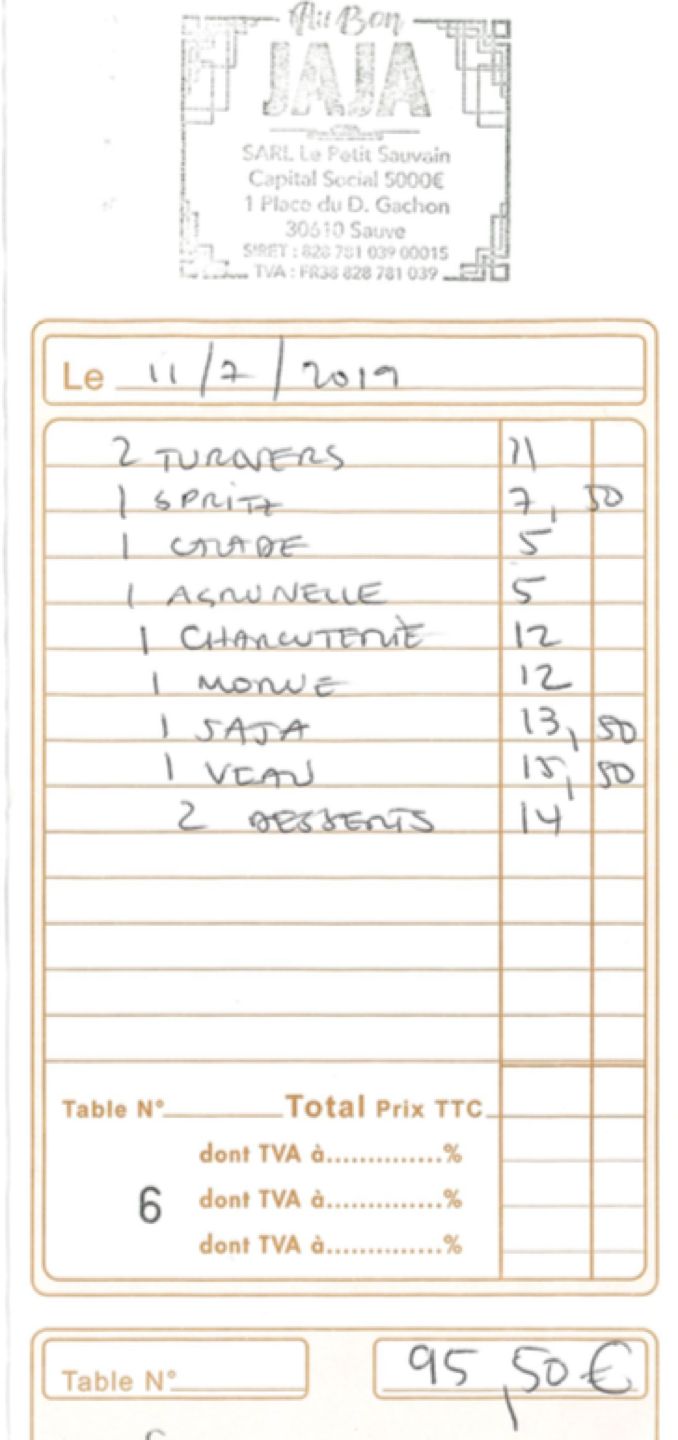 Au Bon
JAJA
SARL Le Petit Sauvain
Capital Social 5000€
1 Place du D. Gachon
30610 Sauve
SIRET : 828 781 039 00015
TVA : FR38 828 781 039
Le 11/7/2019
2 TURNVERS 11
1 SPRITZ 7,50
1 5
1 AGRUNELLE 5
1 CHARCUTERIE 12
1 MORUE 12
1 JAJA 13,50
1 VEAU 15,50
2 DESSERTS 14
Table N° Total Prix TTC
dont TVA à..............%
6 dont TVA à..............%
dont TVA à..............%
Table N° 95,50€